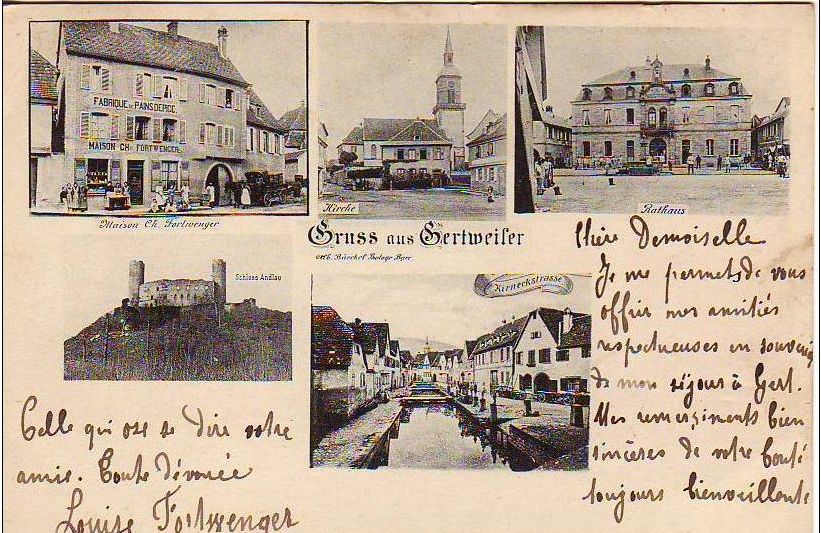 FABRIQUE DE PAINS D'EPICE
MAISON CH. FORTWENGER
Maison Ch. Fortwenger
Kirche
Rathaus
Gruss aus Gertweiler
Schloss Andlau
Kirneckstrasse
Chère Demoiselle
Je me permets de vous
offrir mes amitiés
respectueuses en souvenir
de mon séjour à Gert.
Mes remerciments bien
sincères de votre bonté
toujours bienveillante
Celle qui ose se dire votre
amie. Toute dévouée
Louise Fortwenger